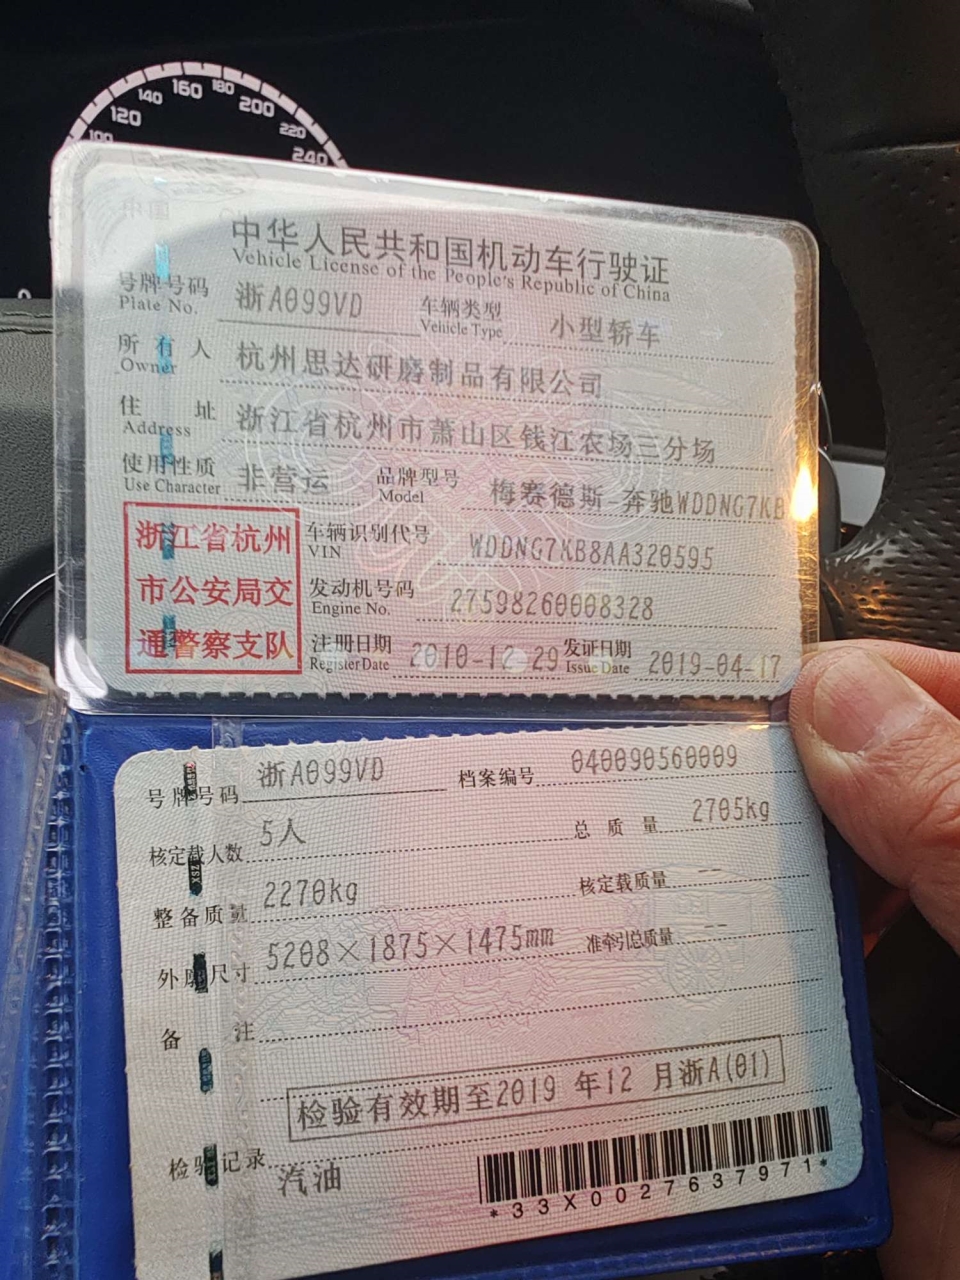 100 120 140 160 180 200 220 240
中华人民共和国机动车行驶证
Vehicle License of the People's Republic of China
号牌号码 浙A099VD 车辆类型 小型轿车
Plate No. Vehicle Type
所有人 杭州思达研磨制品有限公司
Owner
住址 浙江省杭州市萧山区钱江农场三分场
Address
使用性质 非营运 品牌型号 梅赛德斯-奔驰WDDNG7KB
Use Character Model
浙江省杭州
市公安局交
通警察支队
车辆识别代号 WDDNG7KB8AA320595
VIN
发动机号码 27598260008328
Engine No.
注册日期 2010-12-29 发证日期 2019-04-17
Register Date Issue Date
号牌号码 浙A099VD 档案编号 040090560009
核定载人数 5人 总质量 2705kg
整备质量 2270kg 核定载质量 --
外廓尺寸 5208×1875×1475mm 准牵引总质量 --
备注
检验有效期至2019年12月浙A(01)
检验记录 汽油
*33X0027637971*